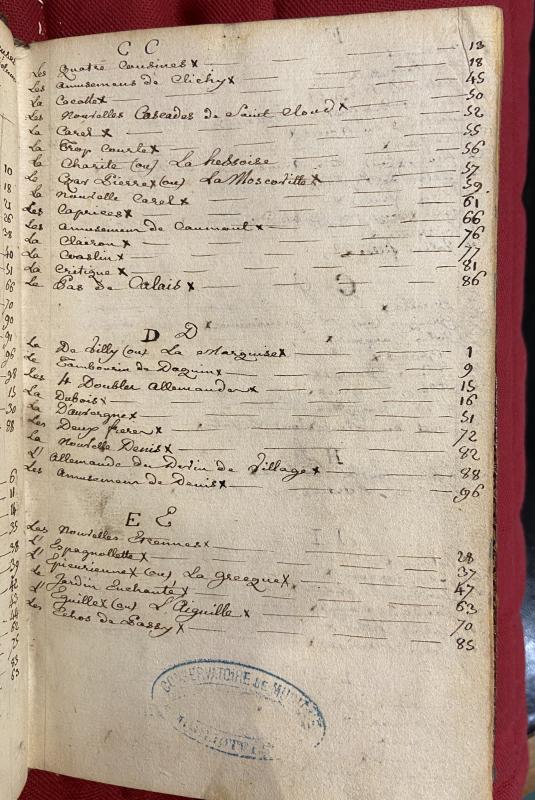 10
18
21
26
38
40
51
66
70
90
91
96
98
15
30
88
11
14
35
38
39
42
43
44
C C
Les Quatre Cousines x 13
Les Amusemens de Clichy x 18
La Cocotte x 45
Les Nouvelles Cascades de Saint Cloud x 50
La Carel x 52
La Trop Courte x 55
La Charite (ou) La hessoise 56
Le Czar Pierre x (ou) La Moscovitte x 57
La Nouvelle Carel x 59
Les Caprices x 61
Les Amusemens de Caumont x 66
La Clairon x 76
La Coaslin x 77
La Critique x 81
Le Pas de Calais x 86
D D
La De Villy (ou) La Marquise x 1
Le Tambourin de Daquin x 9
Les 4 Doubles Allemandes x 15
La Dubois x 16
La Dauvergne x 51
Les Deux freres x 72
La Nouvelle Denis x 82
L'Allemande du Devin de Village x 88
Les Amusemens de Denis x 96
E E
Les Nouvelles Etrennes x 28
L'Espagnollette x 37
L'Epicurienne x (ou) La Grecque x 47
Le Jardin Enchanté x 63
L'Eguille x (ou) L'Aiguille x 70
Les Echos de Passy x 85
CONSERVATOIRE DE MUSIQUE
BIBLIOTHEQUE